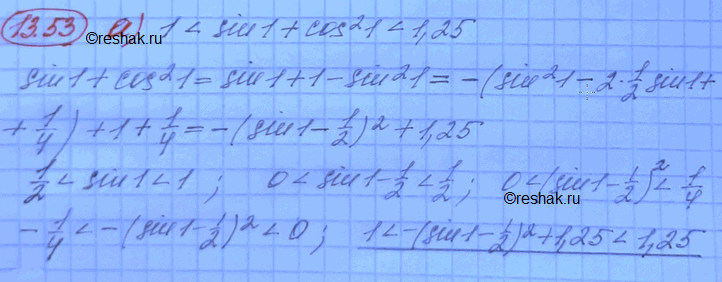 13.53 а) 1 < sin1 + cos²1 < 1,25
©reshak.ru
sin1 + cos²1 = sin1 + 1 - sin²1 = -(sin²1 - 2·1/2 sin1 +
+ 1/4) + 1 + 1/4 = -(sin1 - 1/2)² + 1,25
1/2 < sin1 < 1; 0 < sin1 - 1/2 < 1/2; 0 < (sin1 - 1/2)² < 1/4
©reshak.ru
-1/4 < -(sin1 - 1/2)² < 0; 1 < -(sin1 - 1/2)² + 1,25 < 1,25